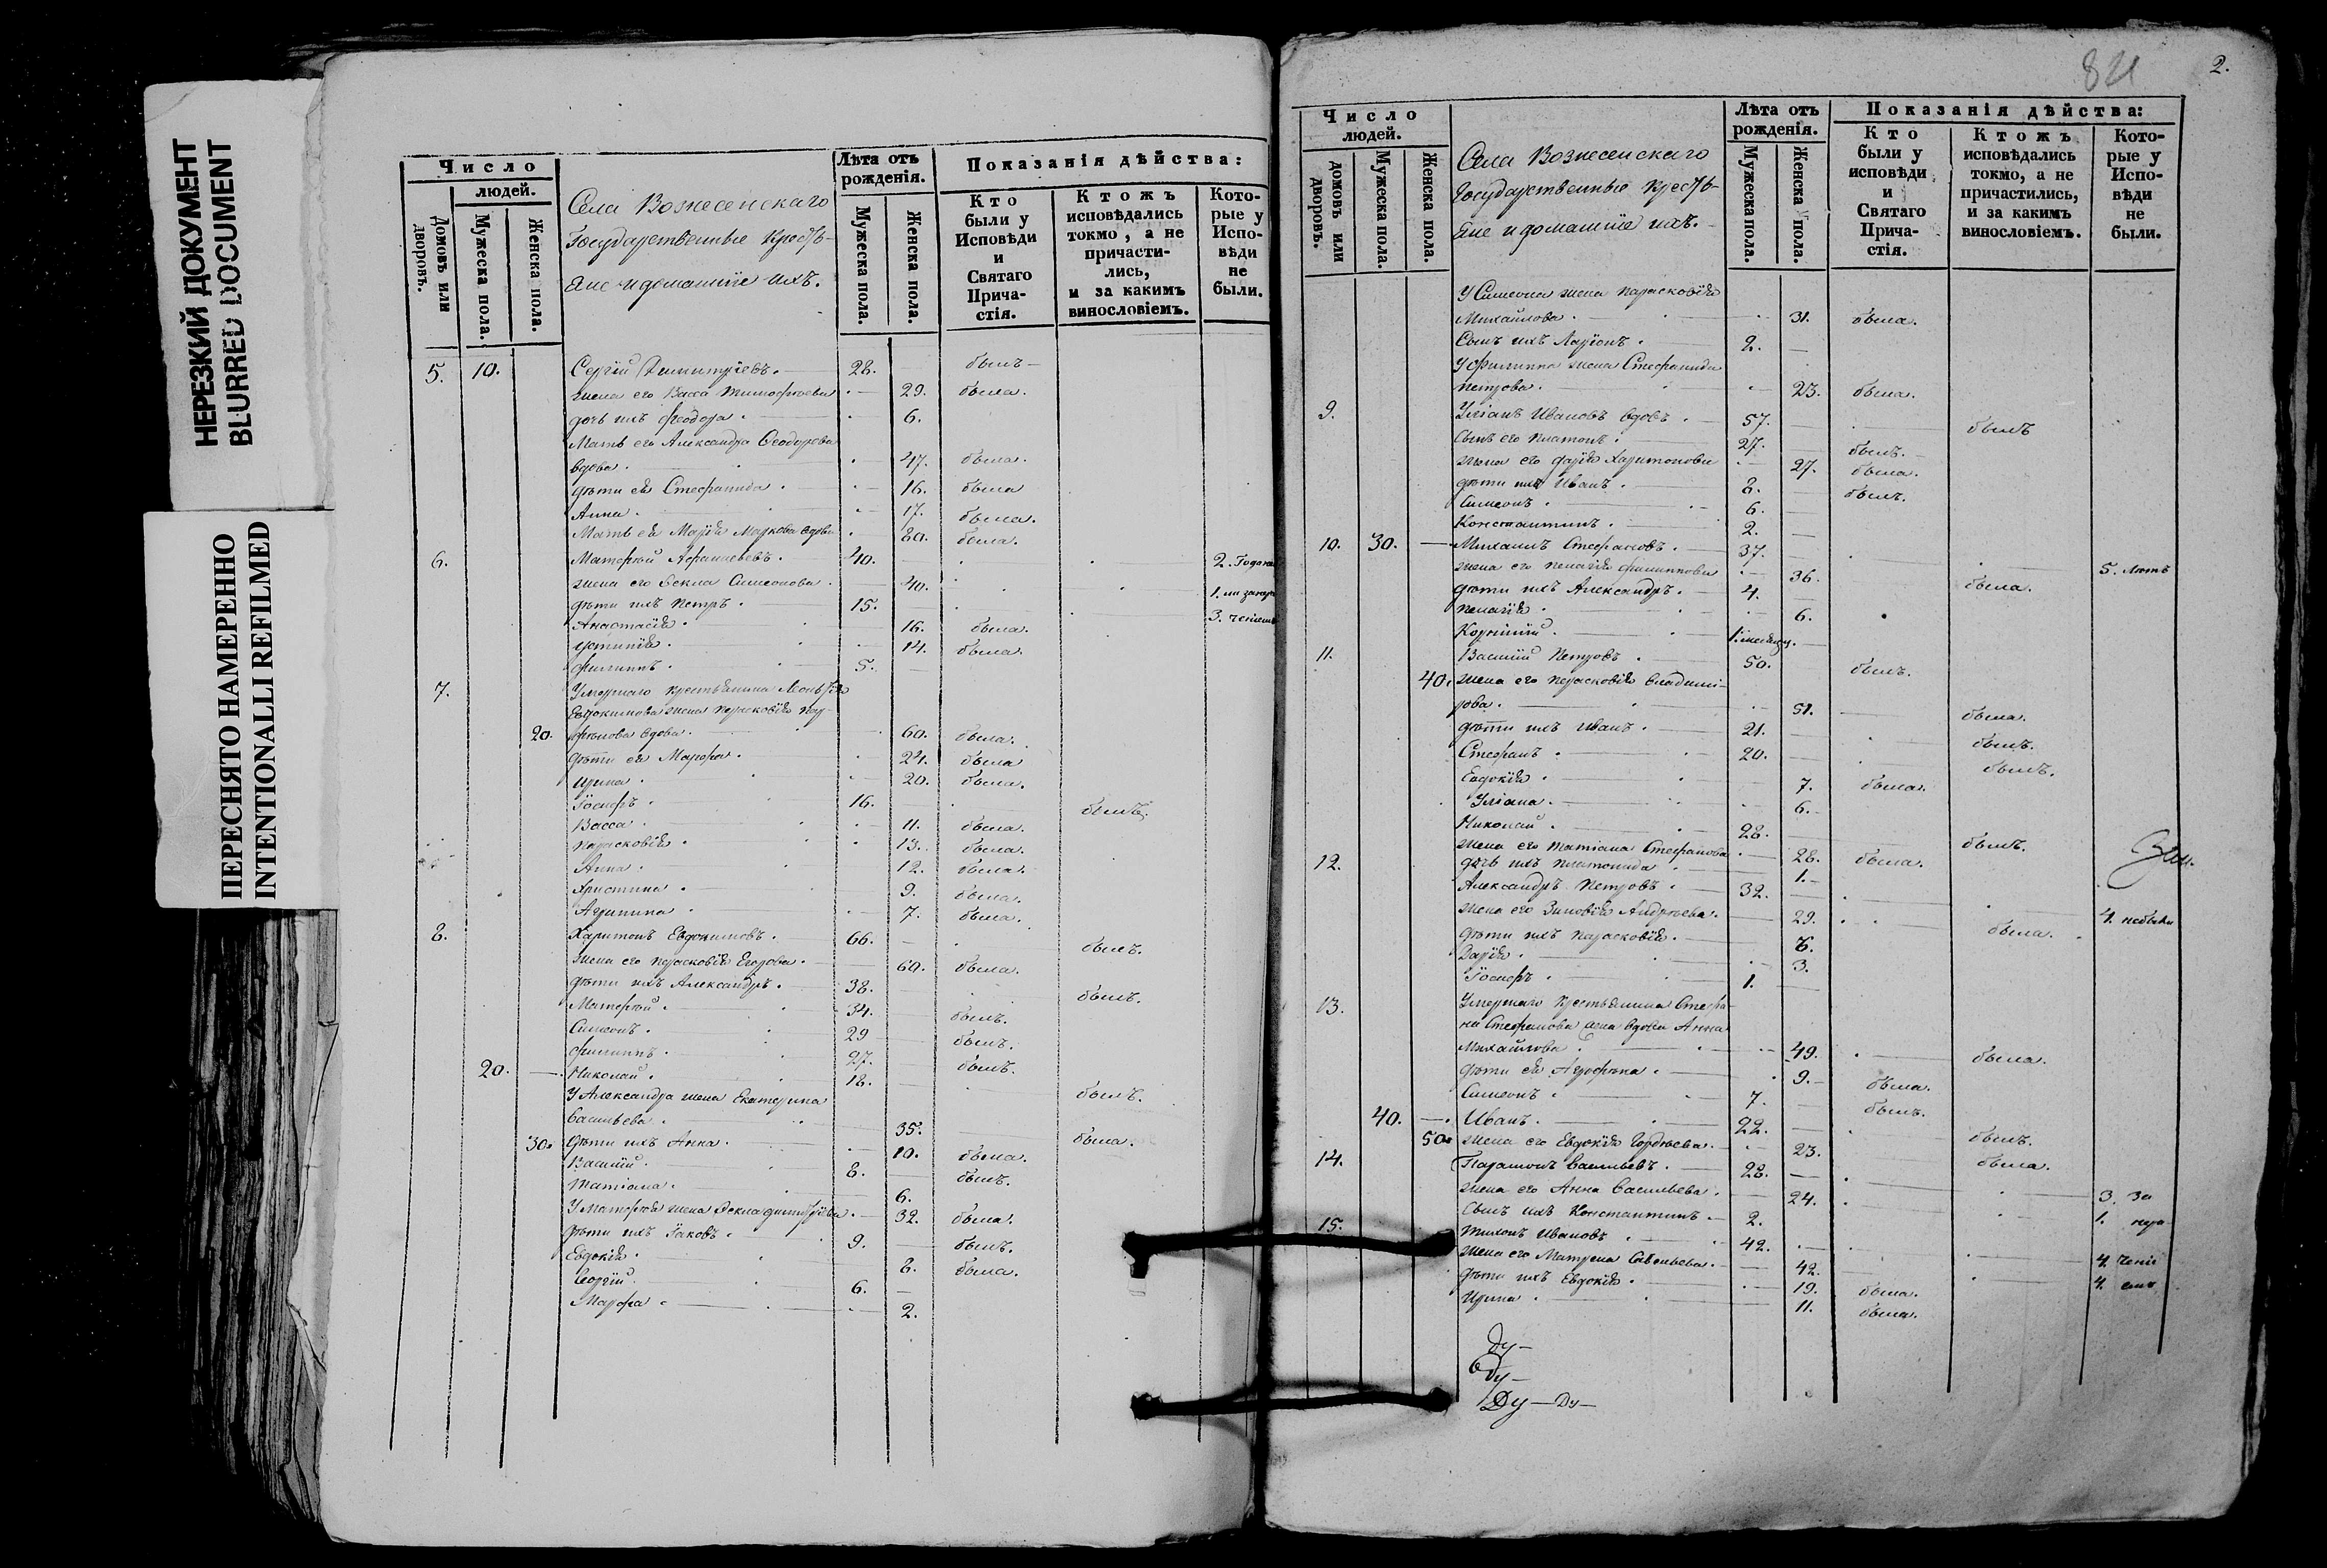 НЕРЕЗКИЙ ДОКУМЕНТ
BLURRED DOCUMENT
ПЕРЕСНЯТО НАМЕРЕННО
INTENTIONALLI REFILMED
Число
людей.
Домовъ или дворовъ.
Мужеска пола.
Женска пола.
Села Вознесенскаго
Государственные Кресть-
яне и домашніе ихъ.
Лѣта отъ рожденія.
Мужеска пола.
Женска пола.
Показанія дѣйства:
Кто были у Исповѣди и Святаго Прича-стія.
Ктожъ исповѣдались токмо, а не причасти-лись, и за какимъ винословіемъ.
Кото-рые у Испо-вѣди не были.
5. 10. Сергій Димитріевъ. 28. былъ
жена его Васса Тимофѣева 29. была.
дочь ихъ Феодора. 6.
Мать его Александра Феодорова
вдова. 47. была.
дѣти ея Стефанида. 16. была
Анна. 17. была.
Мать ея Марія Маркова вдова 80. была.
6. Матфей 40. 2.
жена его Фекла Симеонова. 40. 1.
дѣти ихъ Петръ. 15. 3.
Анастасія. 16. была.
Устинія. 14. была.
Филиппъ. 5.
7. Умершаго крестьянина
Евдокимова жена Парасковія
20. вдова. 60. была.
дѣти ея Марфа. 24. была
Ирина. 20. была.
Іосифъ. 16. былъ.
Васса. 11. была.
Парасковія. 13. была.
Анна. 12. была.
Христина. 9. была.
Агрипина. 7. была.
8. Харитонъ Евдокимовъ. 66. былъ.
жена его Парасковія Егорова. 60. была.
дѣти ихъ Александръ. 38. былъ.
Матфей. 34. былъ.
Симеонъ. 29 былъ.
Филиппъ. 27. былъ.
20. Николай. 18. былъ.
У Александра жена Екатерина
Васильева. 35. была.
30. дѣти ихъ Анна. 10. была.
Василій. 8. былъ.
Татіана. 6.
У Матфея жена Фекла Димитріева. 32. была.
дѣти ихъ Іаковъ. 9. былъ.
Евдокія. 8. была.
Георгій. 6.
Марфа. 2.
821
2.
Число
людей.
домовъ или дворовъ.
Мужеска пола.
Женска пола.
Села Вознесенскаго
Государственные Кресть-
яне и домашніе ихъ.
Лѣта отъ рожденія.
Мужеска пола.
Женска пола.
Показанія дѣйства:
Кто были у исповѣди и Святаго Прича-стія.
Ктожъ исповѣдались токмо, а не причастились, и за какимъ винословіемъ.
Кото-рые у Испо-вѣди не были.
У Симеона жена Парасковія
Михайлова. 31. была.
Сынъ ихъ Ларіонъ. 2.
У Филиппа жена Стефанида
Петрова. 23. была.
9. Уліанъ Ивановъ вдовъ. 57. былъ
Сынъ его Платонъ. 27. былъ.
жена его Дарія Харитонова 27. была.
дѣти ихъ Иванъ. 8. былъ.
Симеонъ. 6.
Константинъ. 2.
10. 30. Михаилъ Стефановъ. 37. 5. лѣтъ
жена его Пелагія Филиппова 36. была.
дѣти ихъ Александръ. 4.
Пелагія. 6.
Корнилій. 1. мѣсяц.
11. Василій Петровъ. 50. былъ.
40. жена его Парасковія Владими-
рова. 51. была.
дѣти ихъ Иванъ. 21. былъ.
Стефанъ. 20. былъ.
Евдокія. 7. была.
Уліана. 6.
Николай. 28. былъ.
жена его Татіана Стефанова 28. была.
12. дочь ихъ Платонида 1.
Александръ Петровъ. 32. 4.
жена его Зиновія Андреева. 29. была.
дѣти ихъ Парасковія. 6.
Дарія. 3.
Іосифъ. 1.
13. Умершаго крестьянина Стефа-
на Стефанова жена вдова Анна
Михайлова. 49. была.
дѣти ея Агрофена. 9. была.
Симеонъ. 7. былъ.
40. Иванъ. 22. былъ.
50. жена его Евдокія Гордѣева. 23. была.
14. Парамонъ Васильевъ. 28. 3. за
жена его Анна Васильева. 24. 1.
Сынъ ихъ Константинъ. 2.
15. Тихонъ Ивановъ. 42. 4.
жена его Матрена Савельева. 42. 4.
дѣти ихъ Евдокія. 19. была.
Ирина. 11. была.
Ду-
Ду-
Ду-Ду-